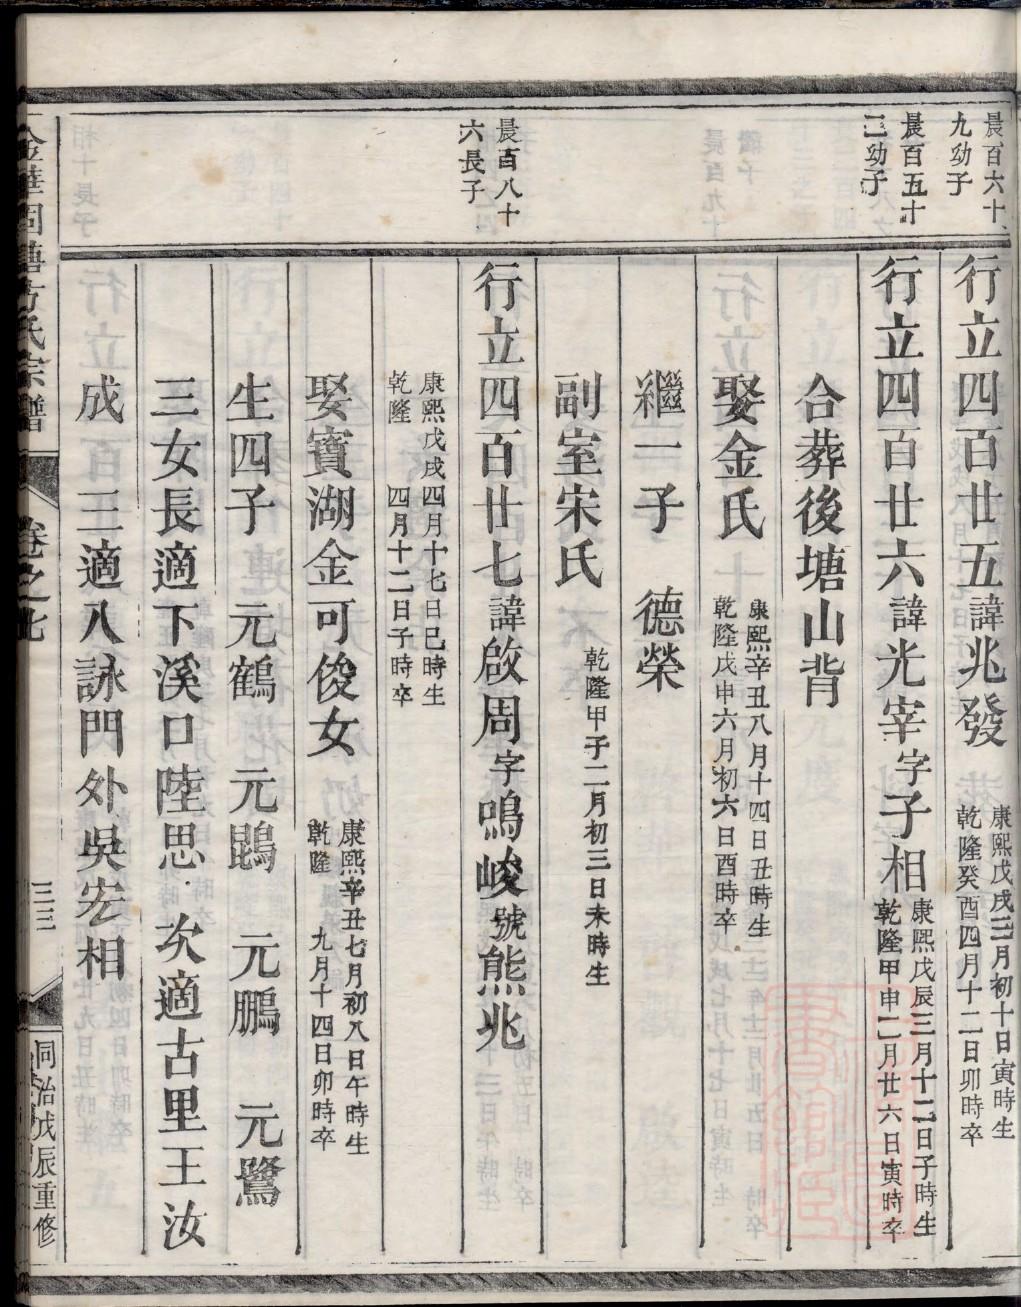 晨百六十
九幼子
行立四百廿五諱兆發
康熙戊戌三月初十日寅時生
乾隆癸酉四月十二日卯時卒
晨百五十
二幼子
行立四百廿六諱光宰字子相
康熙戊辰三月十二日子時生
乾隆甲申二月廿六日寅時卒
合葬後塘山背
娶金氏
康熙辛丑八月十四日丑時生
乾隆戊申六月初六日酉時卒
繼一子 德榮
副室宋氏
乾隆甲子二月初三日未時生
晨百八十
六長子
行立四百廿七諱啟周字鳴峻號熊兆
康熙戊戌四月十七日己時生
乾隆 四月十二日子時卒
娶寶湖金可俊女
康熙辛丑七月初八日午時生
乾隆 九月十四日卯時卒
生四子 元鶴 元鵾 元鵬 元鷺
三女長適下溪口陸思 次適古里王汝
成 三適八詠門外吳宏相
方氏宗譜
卷之七
三三
同治戊辰重修